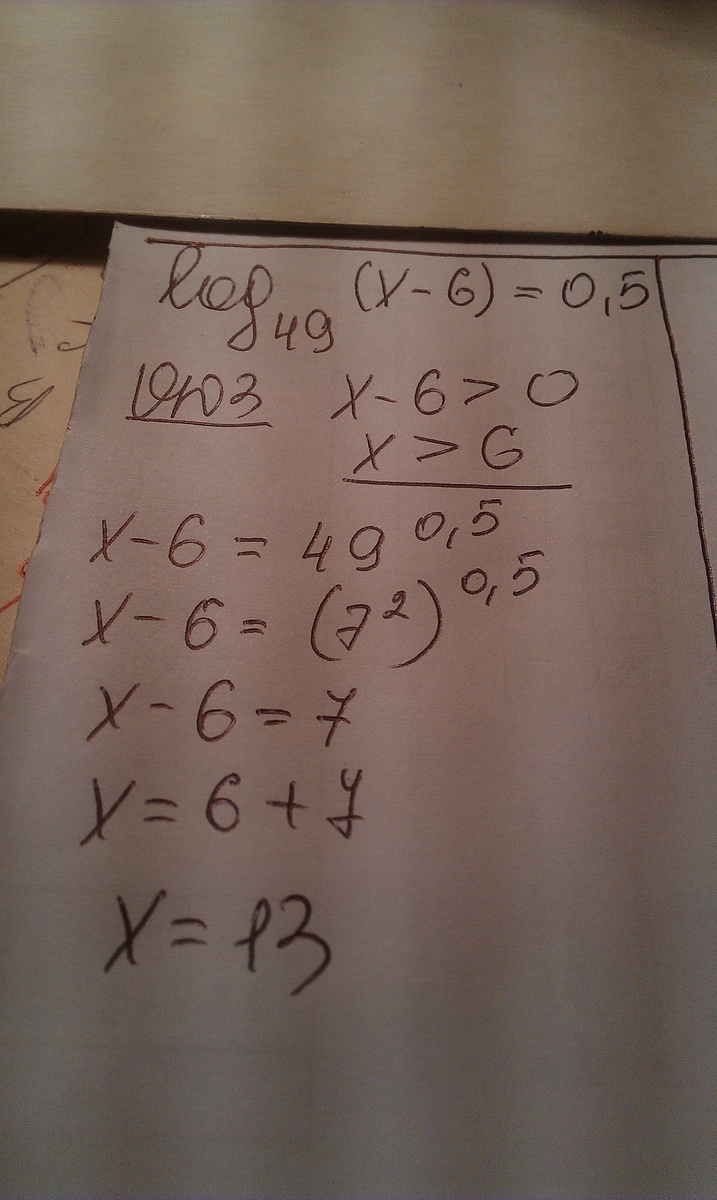 log₄₉ (x-6) = 0,5
ОДЗ x-6 > 0
x > 6
x-6 = 49^0,5
x-6 = (7²)^0,5
x-6 = 7
x = 6 + 7
x = 13